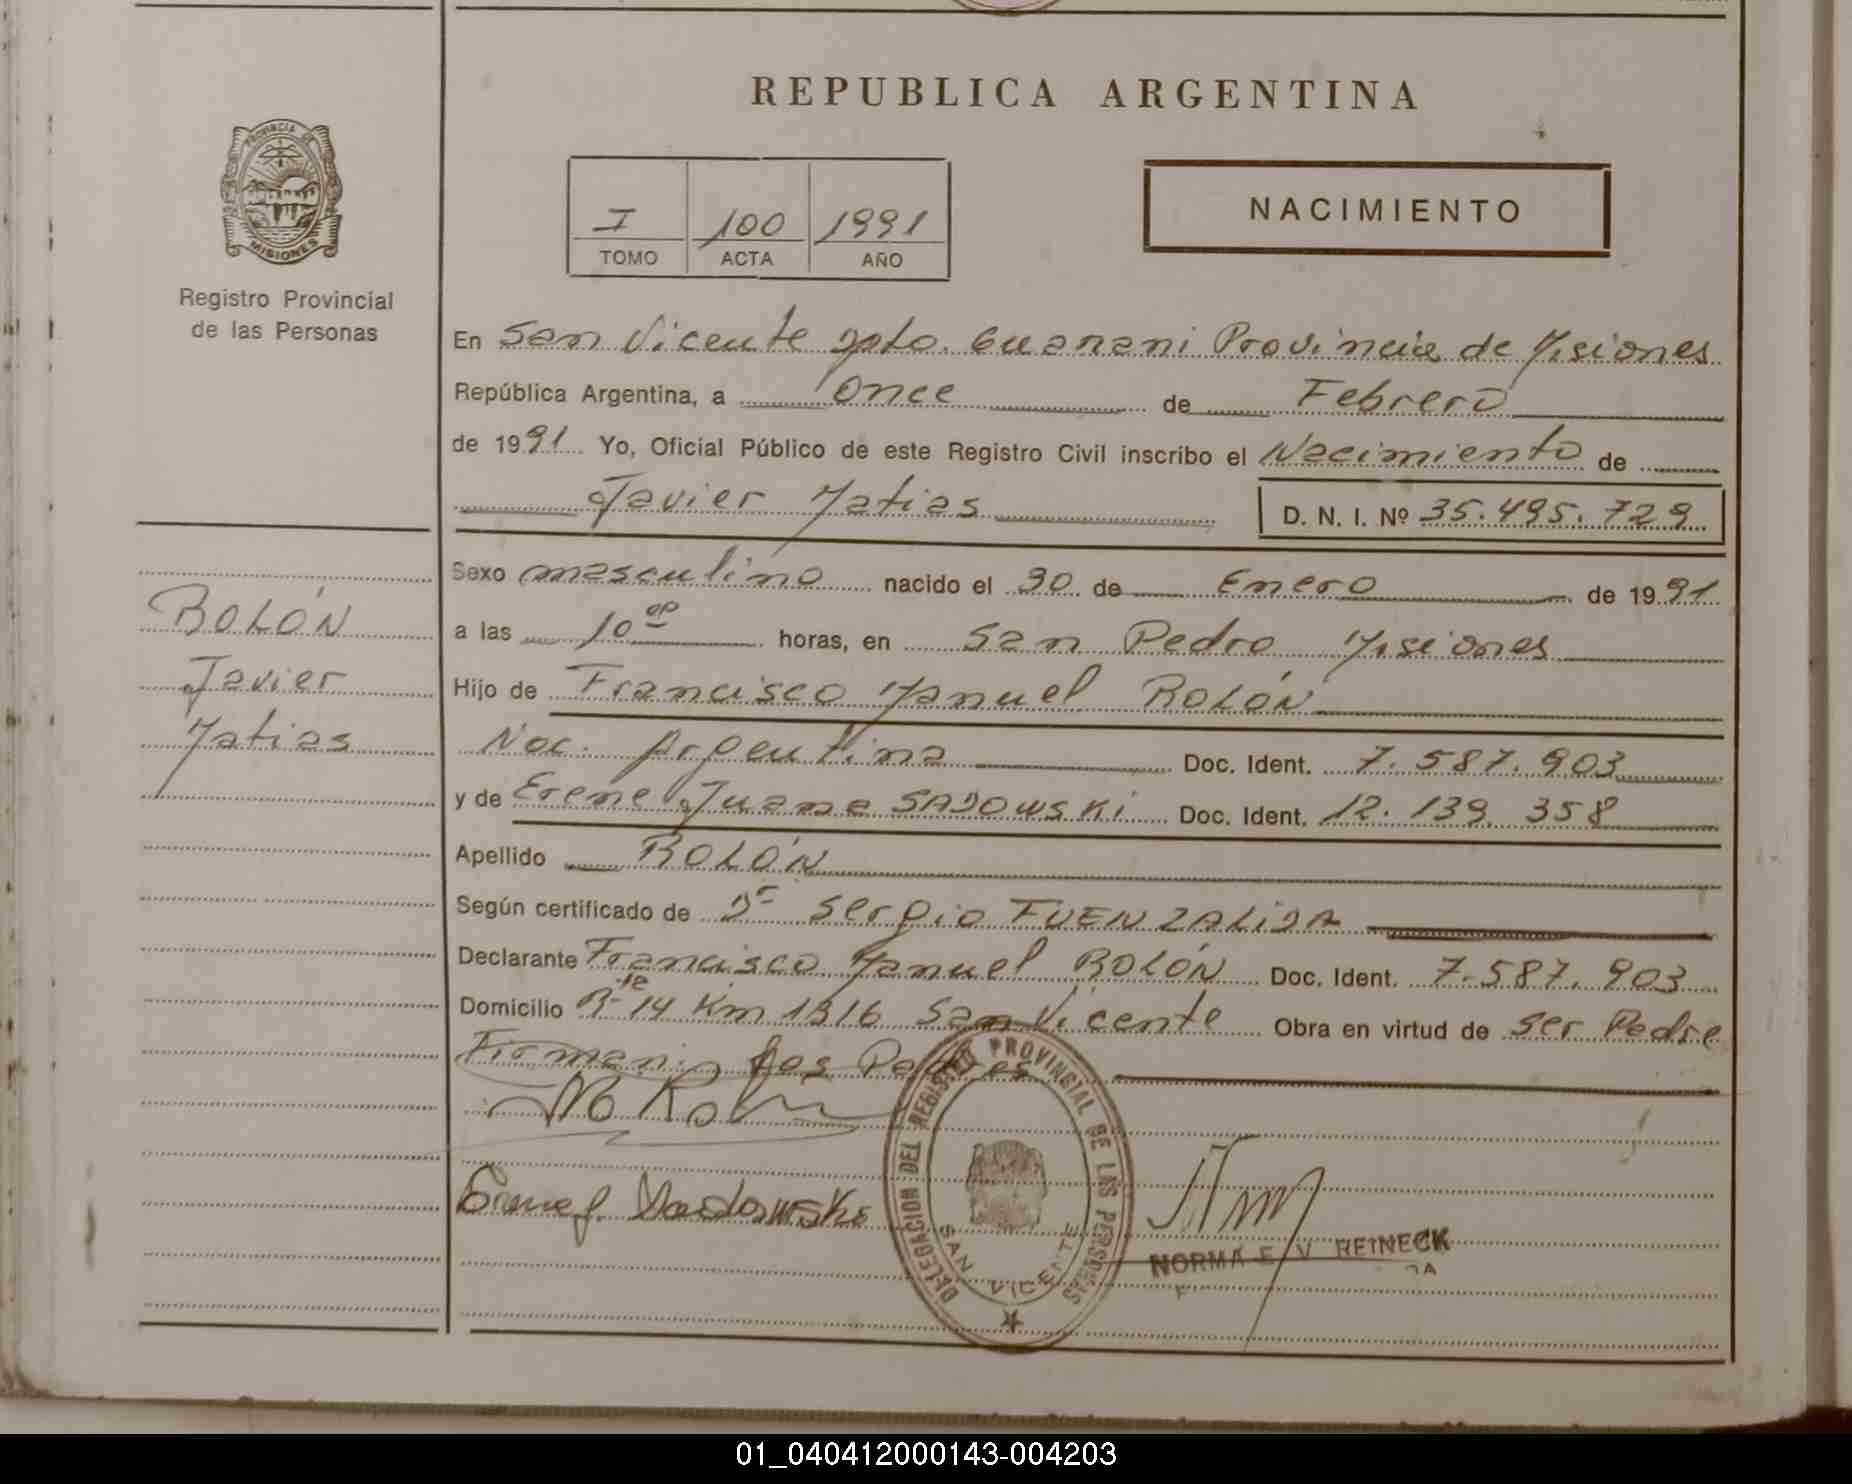 REPUBLICA ARGENTINA
PROVINCIA DE
MISIONES
Registro Provincial
de las Personas
I 100 1991
TOMO ACTA AÑO
NACIMIENTO
En San Vicente Dpto. Guarani Provincia de Misiones
República Argentina, a Once de Febrero
de 1991 Yo, Oficial Público de este Registro Civil inscribo el Nacimiento de
Javier Matias D. N. I. Nº 35.495.729
Sexo masculino nacido el 30 de Enero de 1991
a las 10 horas, en San Pedro Misiones
Hijo de Francisco Manuel ROLÓN
Nac. Argentina Doc. Ident. 7.587.903
y de Erene Juana SADOWSKI Doc. Ident. 12.139.358
Apellido ROLÓN
Según certificado de Dr Sergio FUENZALIDA
Declarante Francisco Manuel ROLÓN Doc. Ident. 7.587.903
Domicilio R-te 14 Km 1316 San Vicente Obra en virtud de ser Padre
Firman: los Padres
ROLÓN
Javier
Matias
DELEGACION DEL REGISTRO PROVINCIAL DE LAS PERSONAS
SAN VICENTE
Sadowski
NORMA E. V. REINECK
01_040412000143-004203